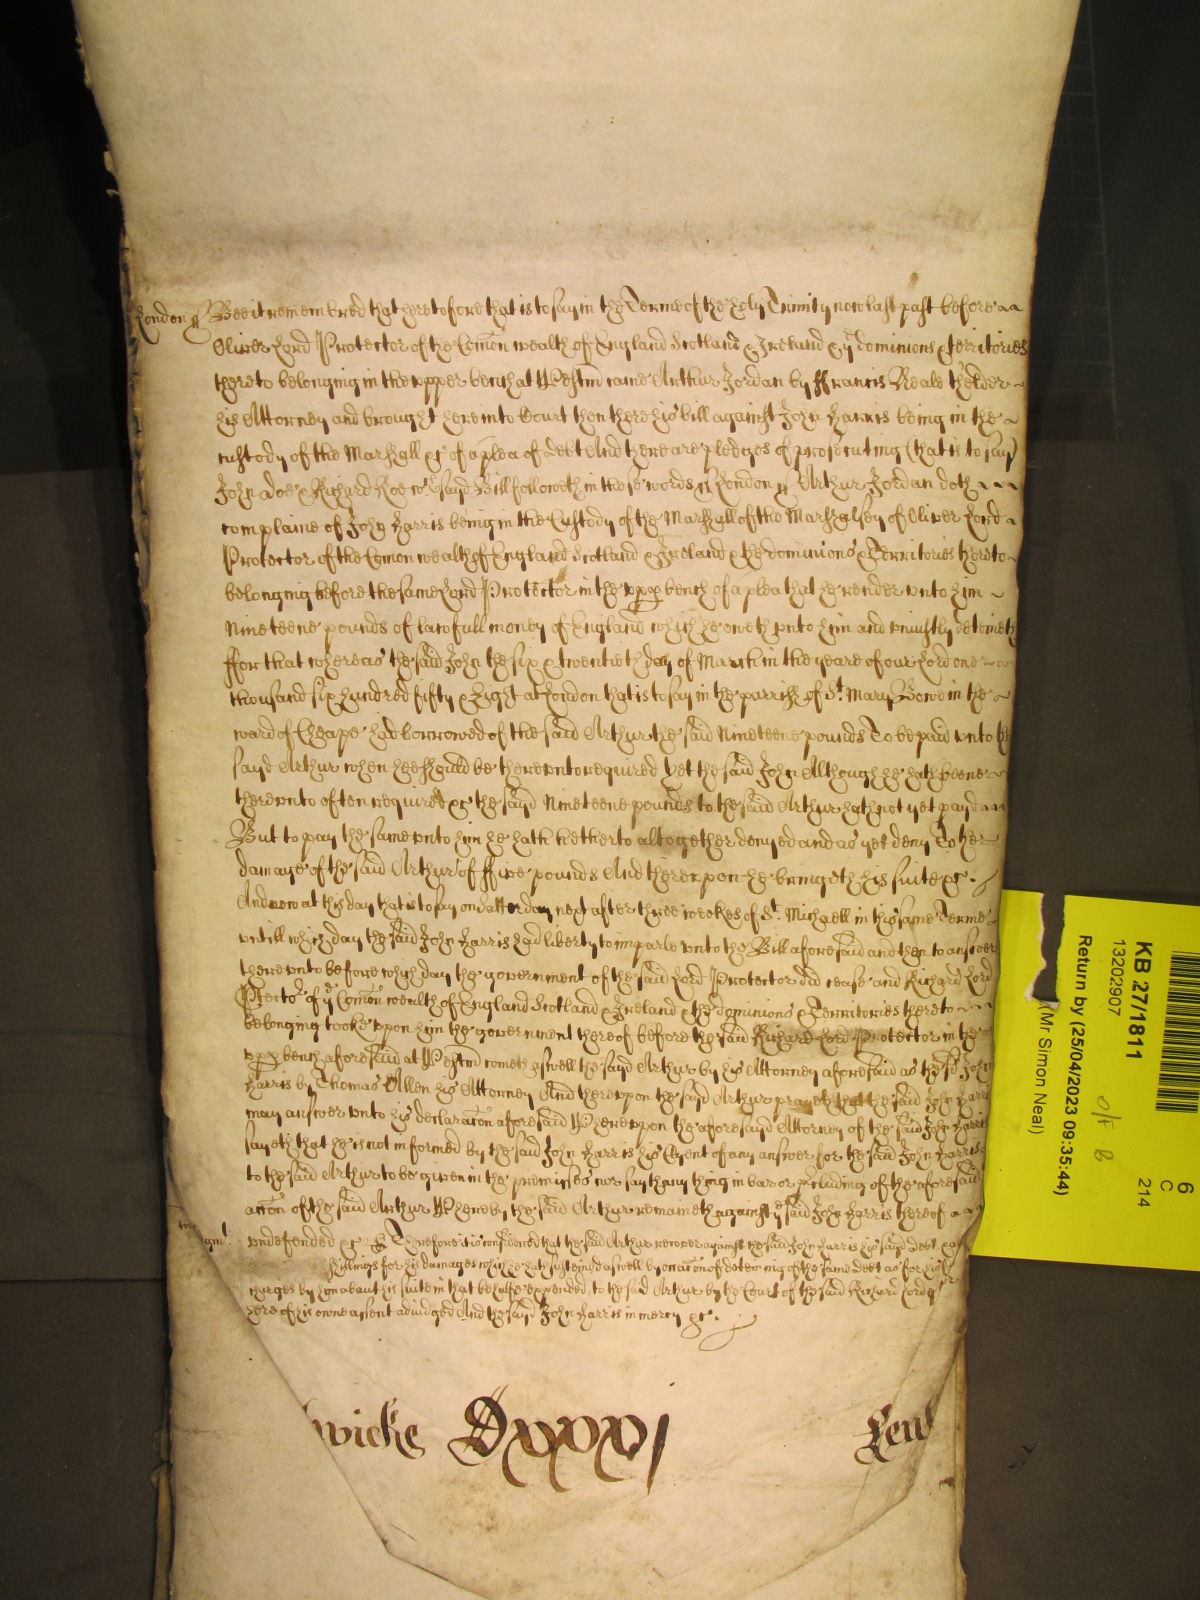 London ss Bee it remembred that heretofore that is to say in the Terme of the holy Trinity now last past before
Oliver Lord Protector of the Com̄on wealth of England Scotland & Ireland & ye dominions & territories
thereto belonging in the upper bench at Westm̄ came Arthur Jordan by ffrancis Reale th'elder
his Attorney and brought here into Court then there his bill against John Harris being in the
custody of the Marshall &c of a plea of debt And there are pledges of prosecuting (that is to say)
John Doe & Richard Roe wch sayd Bill followeth in these words ss London ss Arthur Jordan doth
complaine of John Harris being in the Custody of the Marshall of the Marshalsey of Oliver Lord
Protector of the Com̄on wealth of England Scotland & Ireland & the dominions & Territories thereto
belonging before the same Lord Protector in the upp bench of a plea that he render unto him
Nineteene pounds of lawfull money of England which he oweth unto him and uniustly deteineth
ffor that whereas the said John the six & twentieth day of March in the yeare of our Lord one
thousand six hundred fifty & Eight at London that is to say in the parrish of St. Mary Bowe in the
ward of Cheape had borrowed of the said Arthur the said Nineteene pounds To be paid unto the
sayd Arthur when hee should be thereunto required Yet the said John Although he hath beene
thereunto often required &c the sayd Nineteene pounds to the said Arthur hath not yet payd
But to pay the same unto him he hath hetherto altogether denyed and as yet deny To the
damage of the said Arthur of ffive pounds And thereupon he bringeth his suite &c.
And now at this day that is to say on Satterday next after three weekes of St. Michaell in this same Terme
untill which day the said John Harris had liberty to imparle unto the Bill aforesaid and then to answer
thereunto before which day the government of the said Lord Protector did cease and Richard Lord
Ptector of ye Com̄on wealth of England Scotland & Ireland & the dominions & Territories thereto
belonging tooke upon him the government thereof before the said Richard Lord Protector in the
upp bench aforesaid at Westm̄ cometh aswell the sayd Arthur by his Attorney aforesaid as the sd John
Harris by Thomas Allen his Attorney And thereupon the sayd Arthur prayeth that the said John Harris
may answer unto his declarac̄on aforesaid Whereupon the aforesayd Attorney of the said John Harris
sayeth that he is not informed by the said John Harris his Clyent of any answer for the said John Harris
to the said Arthur to be given in the premisses nor say thany thing in bar or pcluding of the aforesaid
acc̄on of the said Arthur Whereby the said Arthur remaineth against ye said John Harris thereof
undefended &c Therefore it is considered that the said Arthur recover against the said John Harris his sayd debt
shillings for his damages which he hath susteined aswell by occac̄on of deteining of the same debt as for his
charges by him about his suite in that behalfe expended to the said Arthur by the Court of the said Richard Lord
here of his owne assent adiudged And the sayd John Harris in mercy &c.
wicke Dxxxxj Lew
KB 27/1811
13202907
Return by (25/04/2023 09:35:44)
(Mr Simon Neal)
6
C
214